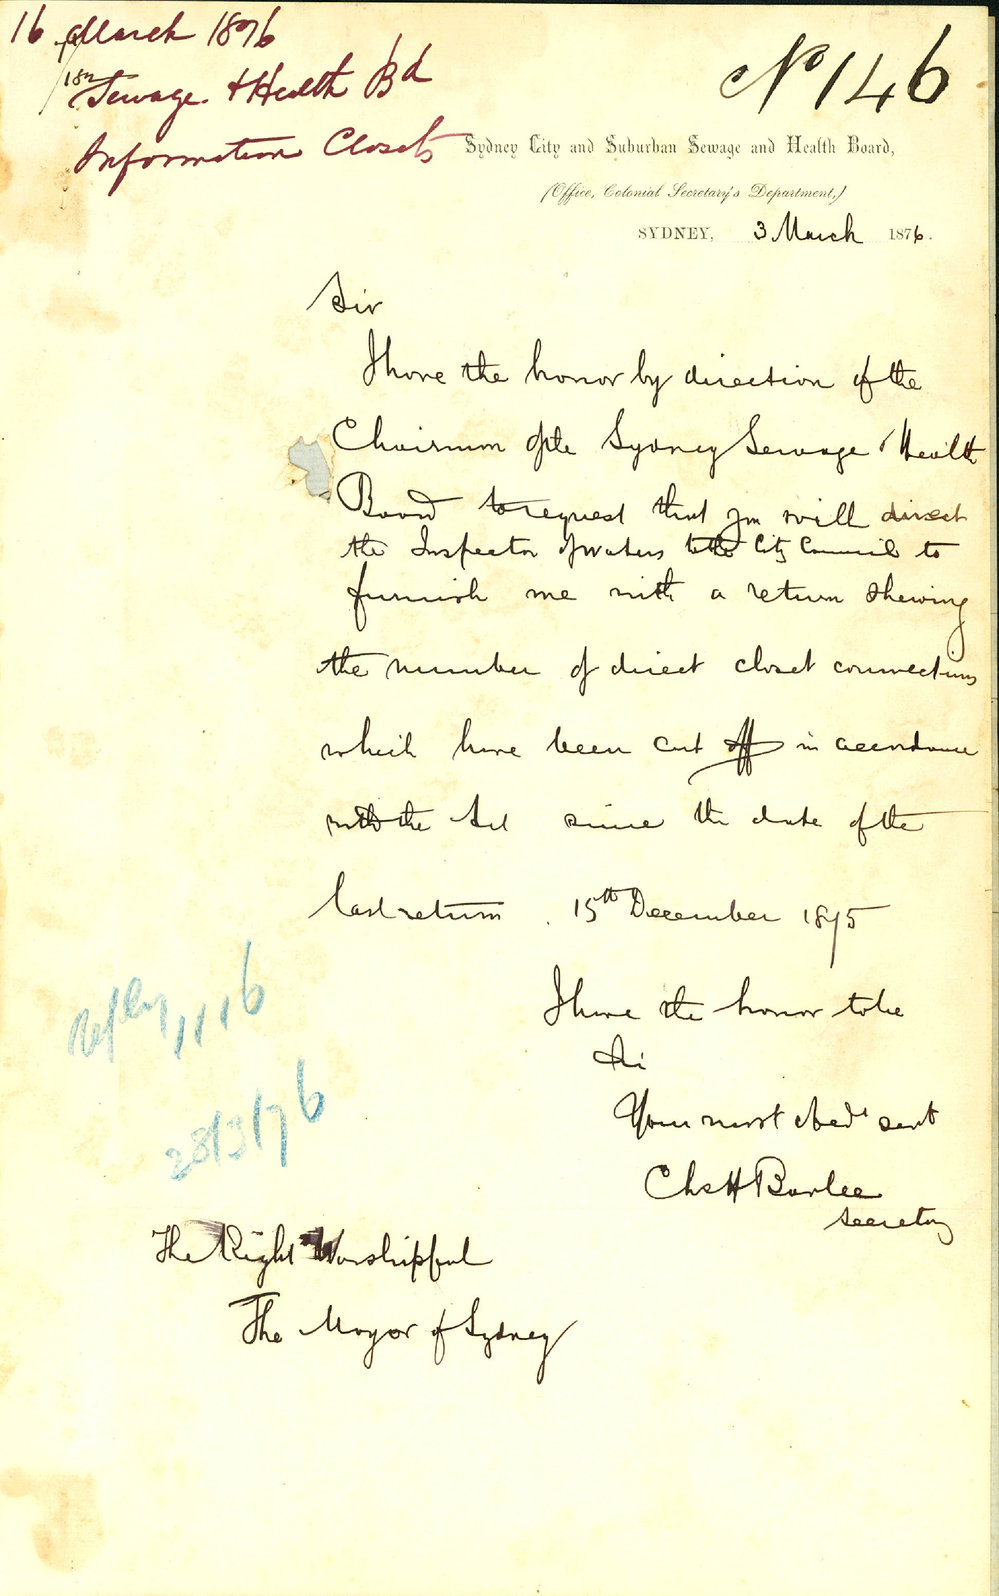 16 March 1876
Sewage & Health Bd
Information Closets
No 146
Sydney City and Suburban Sewage and Health Board,
(Office, Colonial Secretary's Department,)
SYDNEY, 3 March 1876.
Sir
I have the honor by direction of the
Chairman of the Sydney Sewage & Health
Board to request that you will direct
the Inspector of waters to the City Council to
furnish me with a return shewing
the number of direct closet connections
which have been cut off in accordance
with the Act since the date of the
last return. 15th December 1875
I have the honor to be
Sir
Your most obedt servt
Chs H Barlee
Secretary
Reply 1116
28/3/76
The Right Worshipful
The Mayor of Sydney